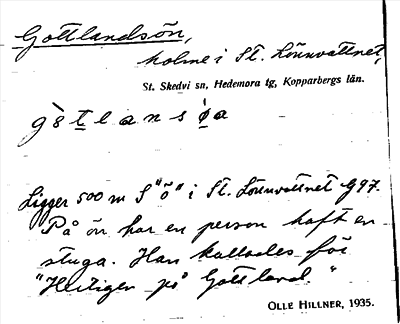 Gottlandsön,
holme i St. Lönnvattnet,
St. Skedvi sn, Hedemora tg, Kopparbergs län.
Ligger 500 m S "ö" i St. Lönnvattnet g97.
På ön har en person haft en
stuga. Han kallades för
"Heiligen på Gottland."
OLLE HILLNER, 1935.